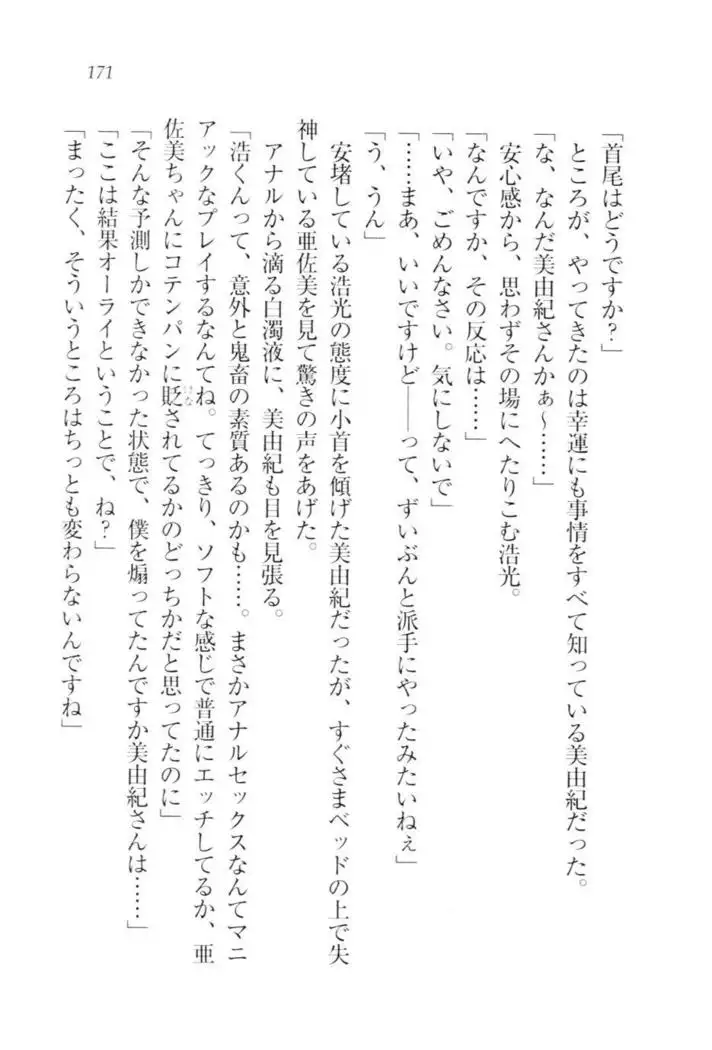 171
「首尾はどうですか？」
ところが、やってきたのは幸運にも事情をすべて知っている美由紀だった。
「な、なんだ美由紀さんかぁ～……」
安心感から、思わずその場にへたりこむ浩光。
「なんですか、その反応は……」
「いや、ごめんなさい。気にしないで」
「……まあ、いいですけど――って、ずいぶんと派手にやったみたいねぇ」
「う、うん」
安堵している浩光の態度に小首を傾げた美由紀だったが、すぐさまベッドの上で失
神している亜佐美を見て驚きの声をあげた。
アナルから滴る白濁液に、美由紀も目を見張る。
「浩くんって、意外と鬼畜の素質あるのかも……。まさかアナルセックスなんてマニ
アックなプレイするなんてね。てっきり、ソフトな感じで普通にエッチしてるか、亜
佐美ちゃんにコテンパンに貶されてるかのどっちかだと思ってたのに」
けな
「そんな予測しかできなかった状態で、僕を煽ってたんですか美由紀さんは……」
「ここは結果オーライということで、ね？」
「まったく、そういうところはちっとも変わらないんですね」